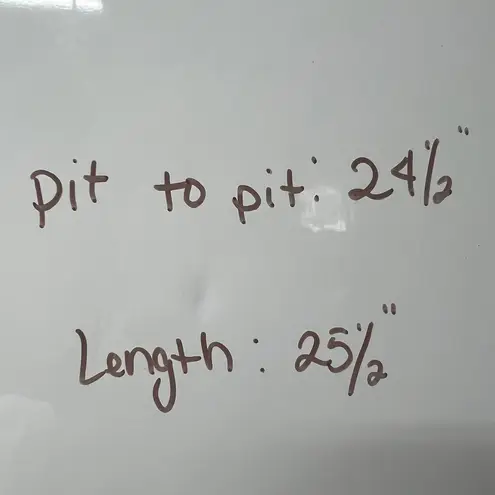 pit to pit: 24½"
Length: 25½"